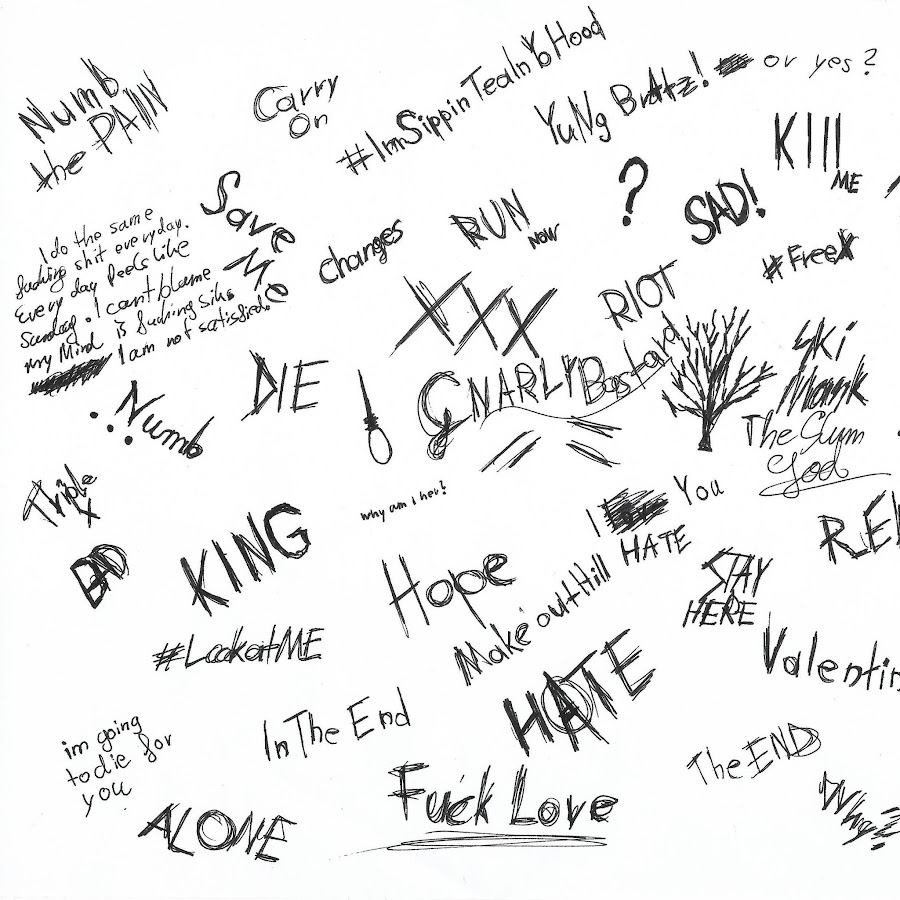 Numb
the PAIN
Carry
On
#ImSippinTeaInYoHood
YuNg BrAtz!
or yes?
KIll
ME
Save
Me
Changes
RUN
NOW
?
SAD!
#FreeX
I do the same
fucking shit everyday.
Every day feels like
Sunday. I cant blame
my Mind is fucking siks
I am not satisfied.
XXX
RIOT
GNARLY Bastard
Ski
Mask
The Slum
God
DIE
Numb
Triple
X
why am i her?
I You
HATE
BAD
KING
Hope
Make out Hill
STAY
HERE
RE
#LookatME
HATE
Valentin
im going
to die for
you
In The End
The END
Fuck Love
ALONE
Why?